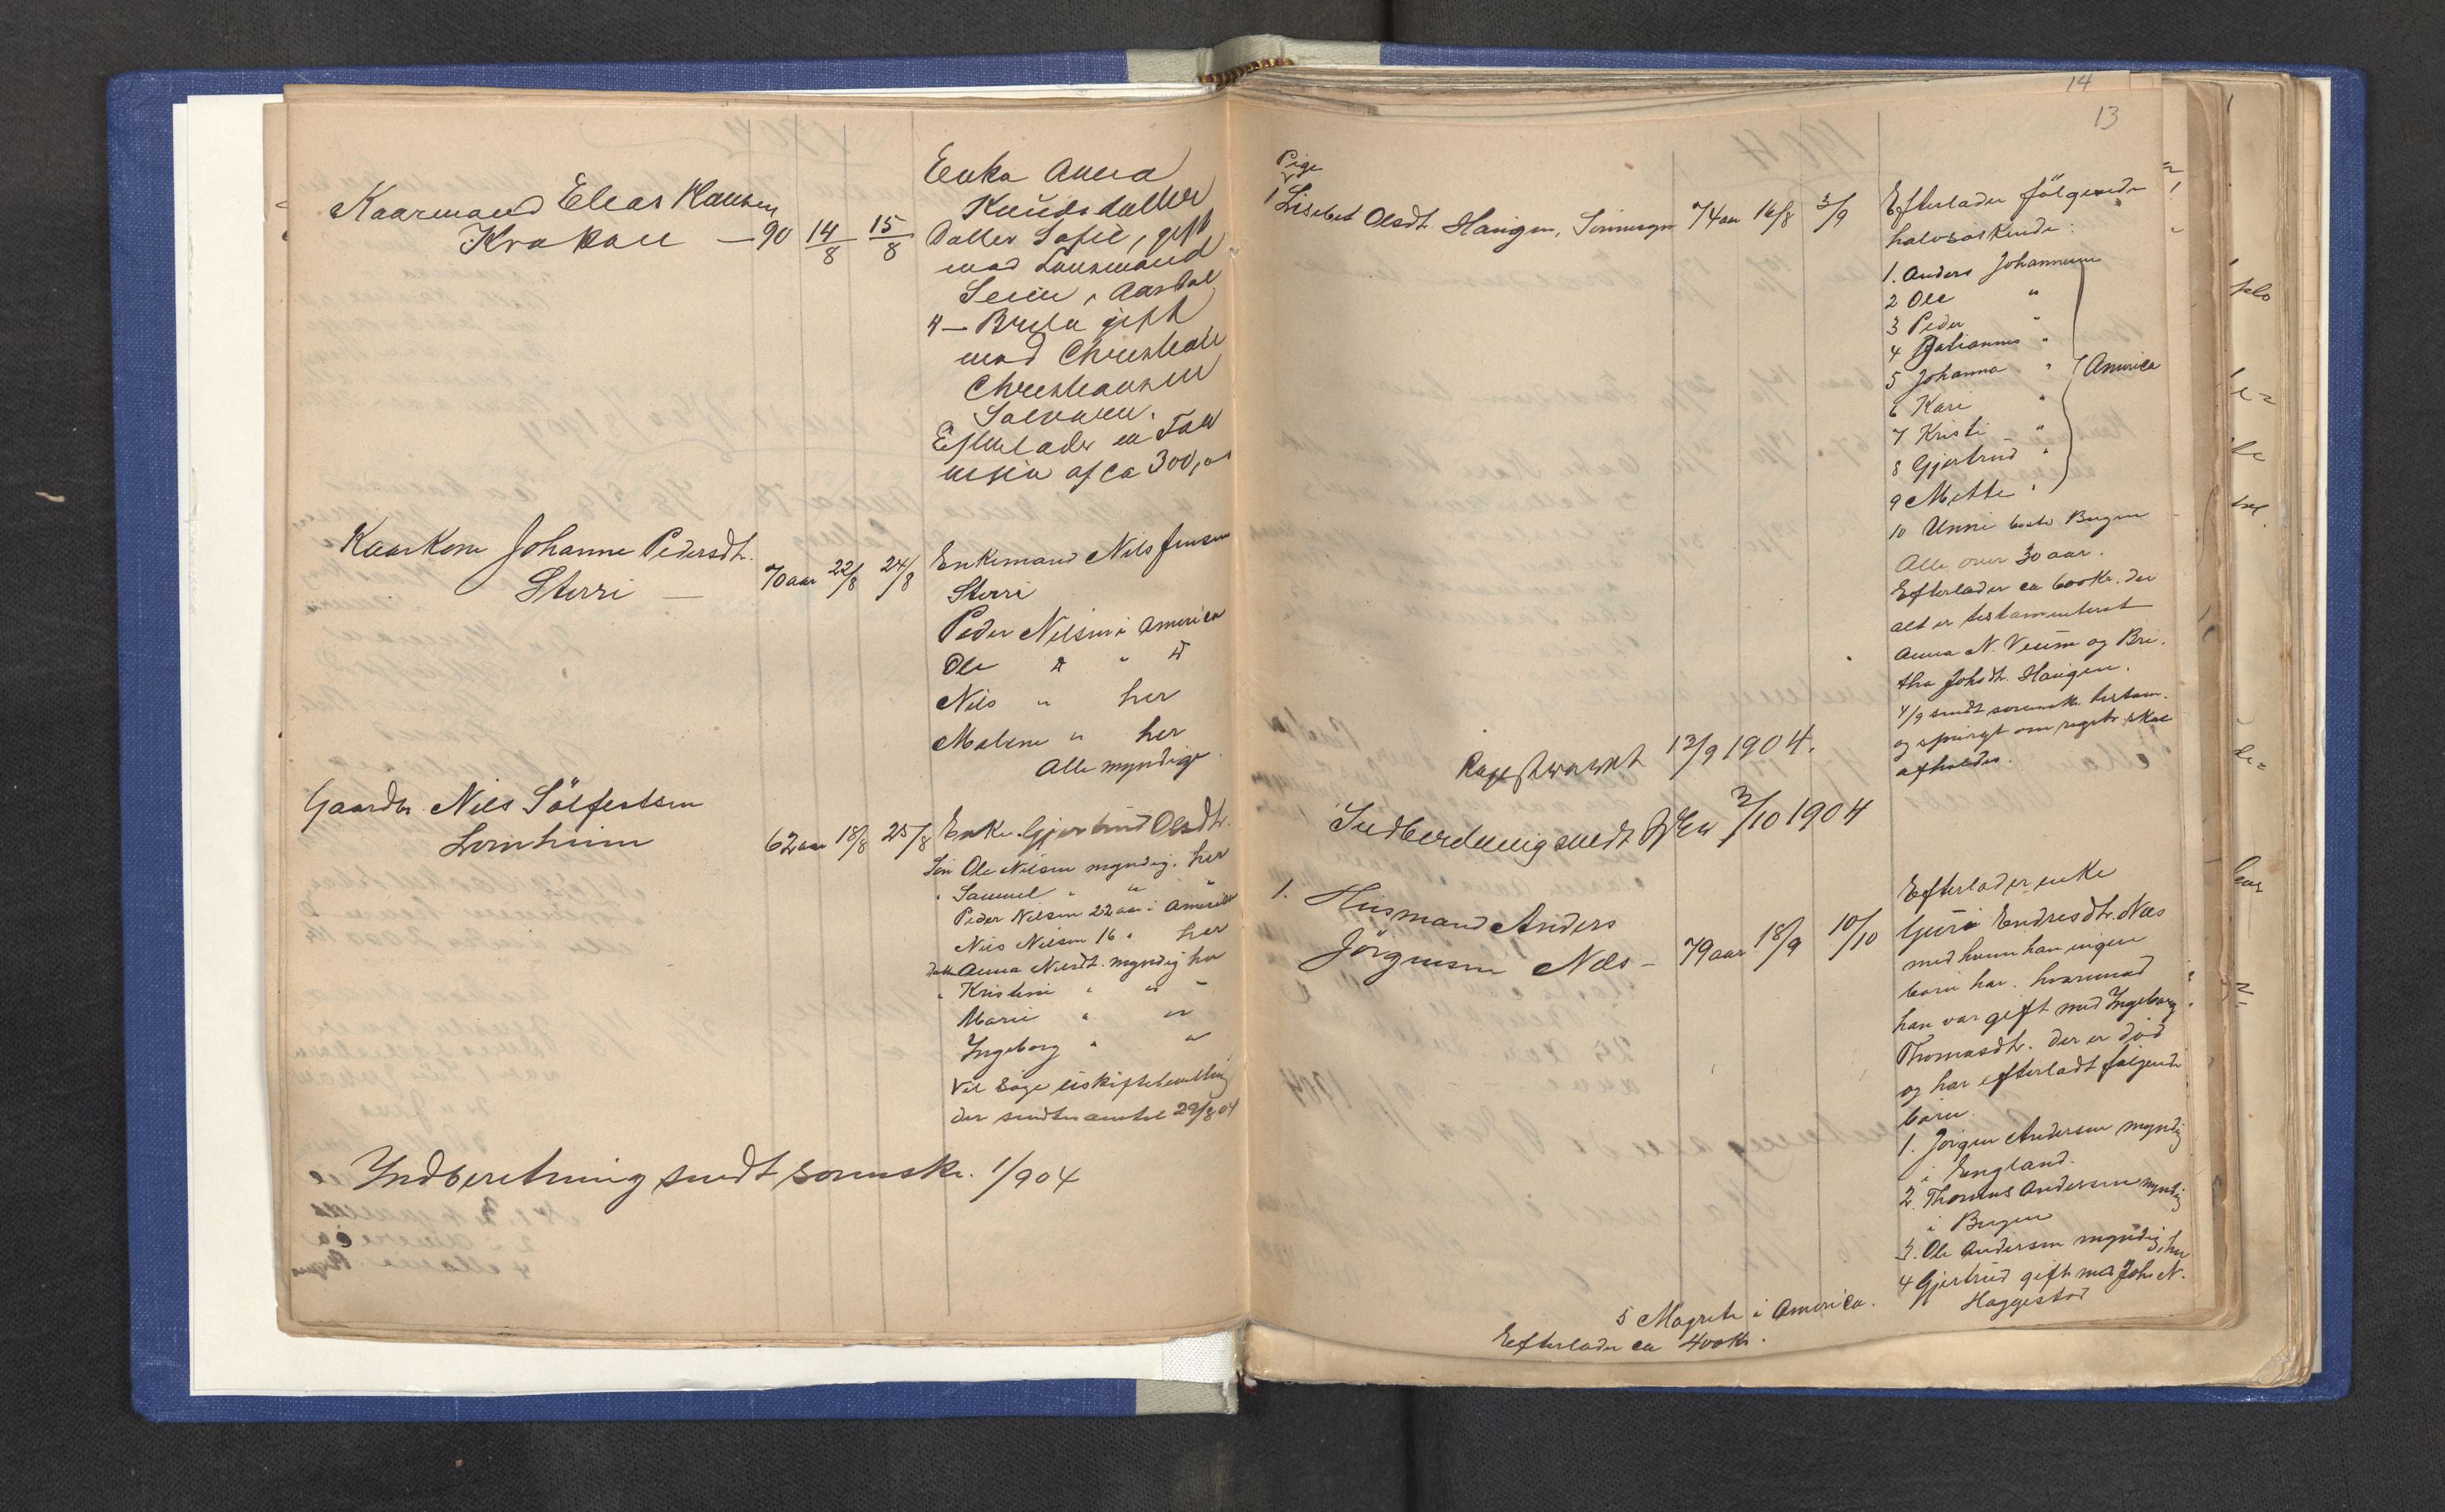 Kaarmand Elias Hansen
Krakau — 90 14/8 15/8
Enka Anna
Knudsdatter
Datter Sofie, gift
med Lensmand
Seim, Aardal
4 — Brita gift
med Christian
Christiansen
Efterlader en For
af ca 300,00
Kaarkone Johanne Pedersdtr.
Sterri — 70 aar 22/8 24/8
Enkemand Nils Jensen
Sterri
Peder Nilsen i America
Ole " " "
Nils " her
Malene " her
Alle myndige.
Gaardbr. Nils Sølfestsen
Lornheim 62 aar 18/8 25/8
Enke Gjertrud Olsdtr.
Søn Ole Nilsen myndig. her
" Samuel " " "
Peder Nilsen 22 aar i Amerika
Nils Nilsen 16 " her
Datt. Anna Nilsdt. myndig her
" Kristine " " "
Marie " "
Ingeborg " "
Vil søge uskiftebevilling
der sendtes amtet 29/8 04
Indberetning sendt sorenskr. 1/9 04
14
13
Pige
1 Lisebet Olsdt. Haugen, 74 aar 16/8 3/9
Efterlader følgende
halvsøskende:
1. Anders Johannesen
2 Ole "
3 Peder "
4 Johannes "
5 Johanna " America
6 Kari "
7 Kristi — "
8 Gjertrud "
9 Mette "
10 Unni Bergen
Alle over 30 aar.
Efterlader ca 600 Kr. der
alt er testamenteret
Anna N. Veum og Bri-
tha Johsdt. Haugen.
4/9 sendt sorensk. testam.
og spurgt om registr. skal
afholdes.
Registreret 12/9 1904.
Indberetning sendt 3/10 1904
1. Husmand Anders
Jørgensen Næs — 79 aar 18/9 10/10
Efterlader enke
Guri Endresdtr. Næs
med hvem han ingen
børn har. hvormed
han var gift med Ingeborg
Thomasdtr. der er død
og har efterladt følgende
børn.
1. Jørgen Andersen myndig
i England.
2. Thomas Andersen myndig
i Bergen
3. Ole Andersen myndig, her
4 Gjertrud gift med Johs N.
Haggestad
5 Magrete i America.
Efterlader ca 400 Kr.